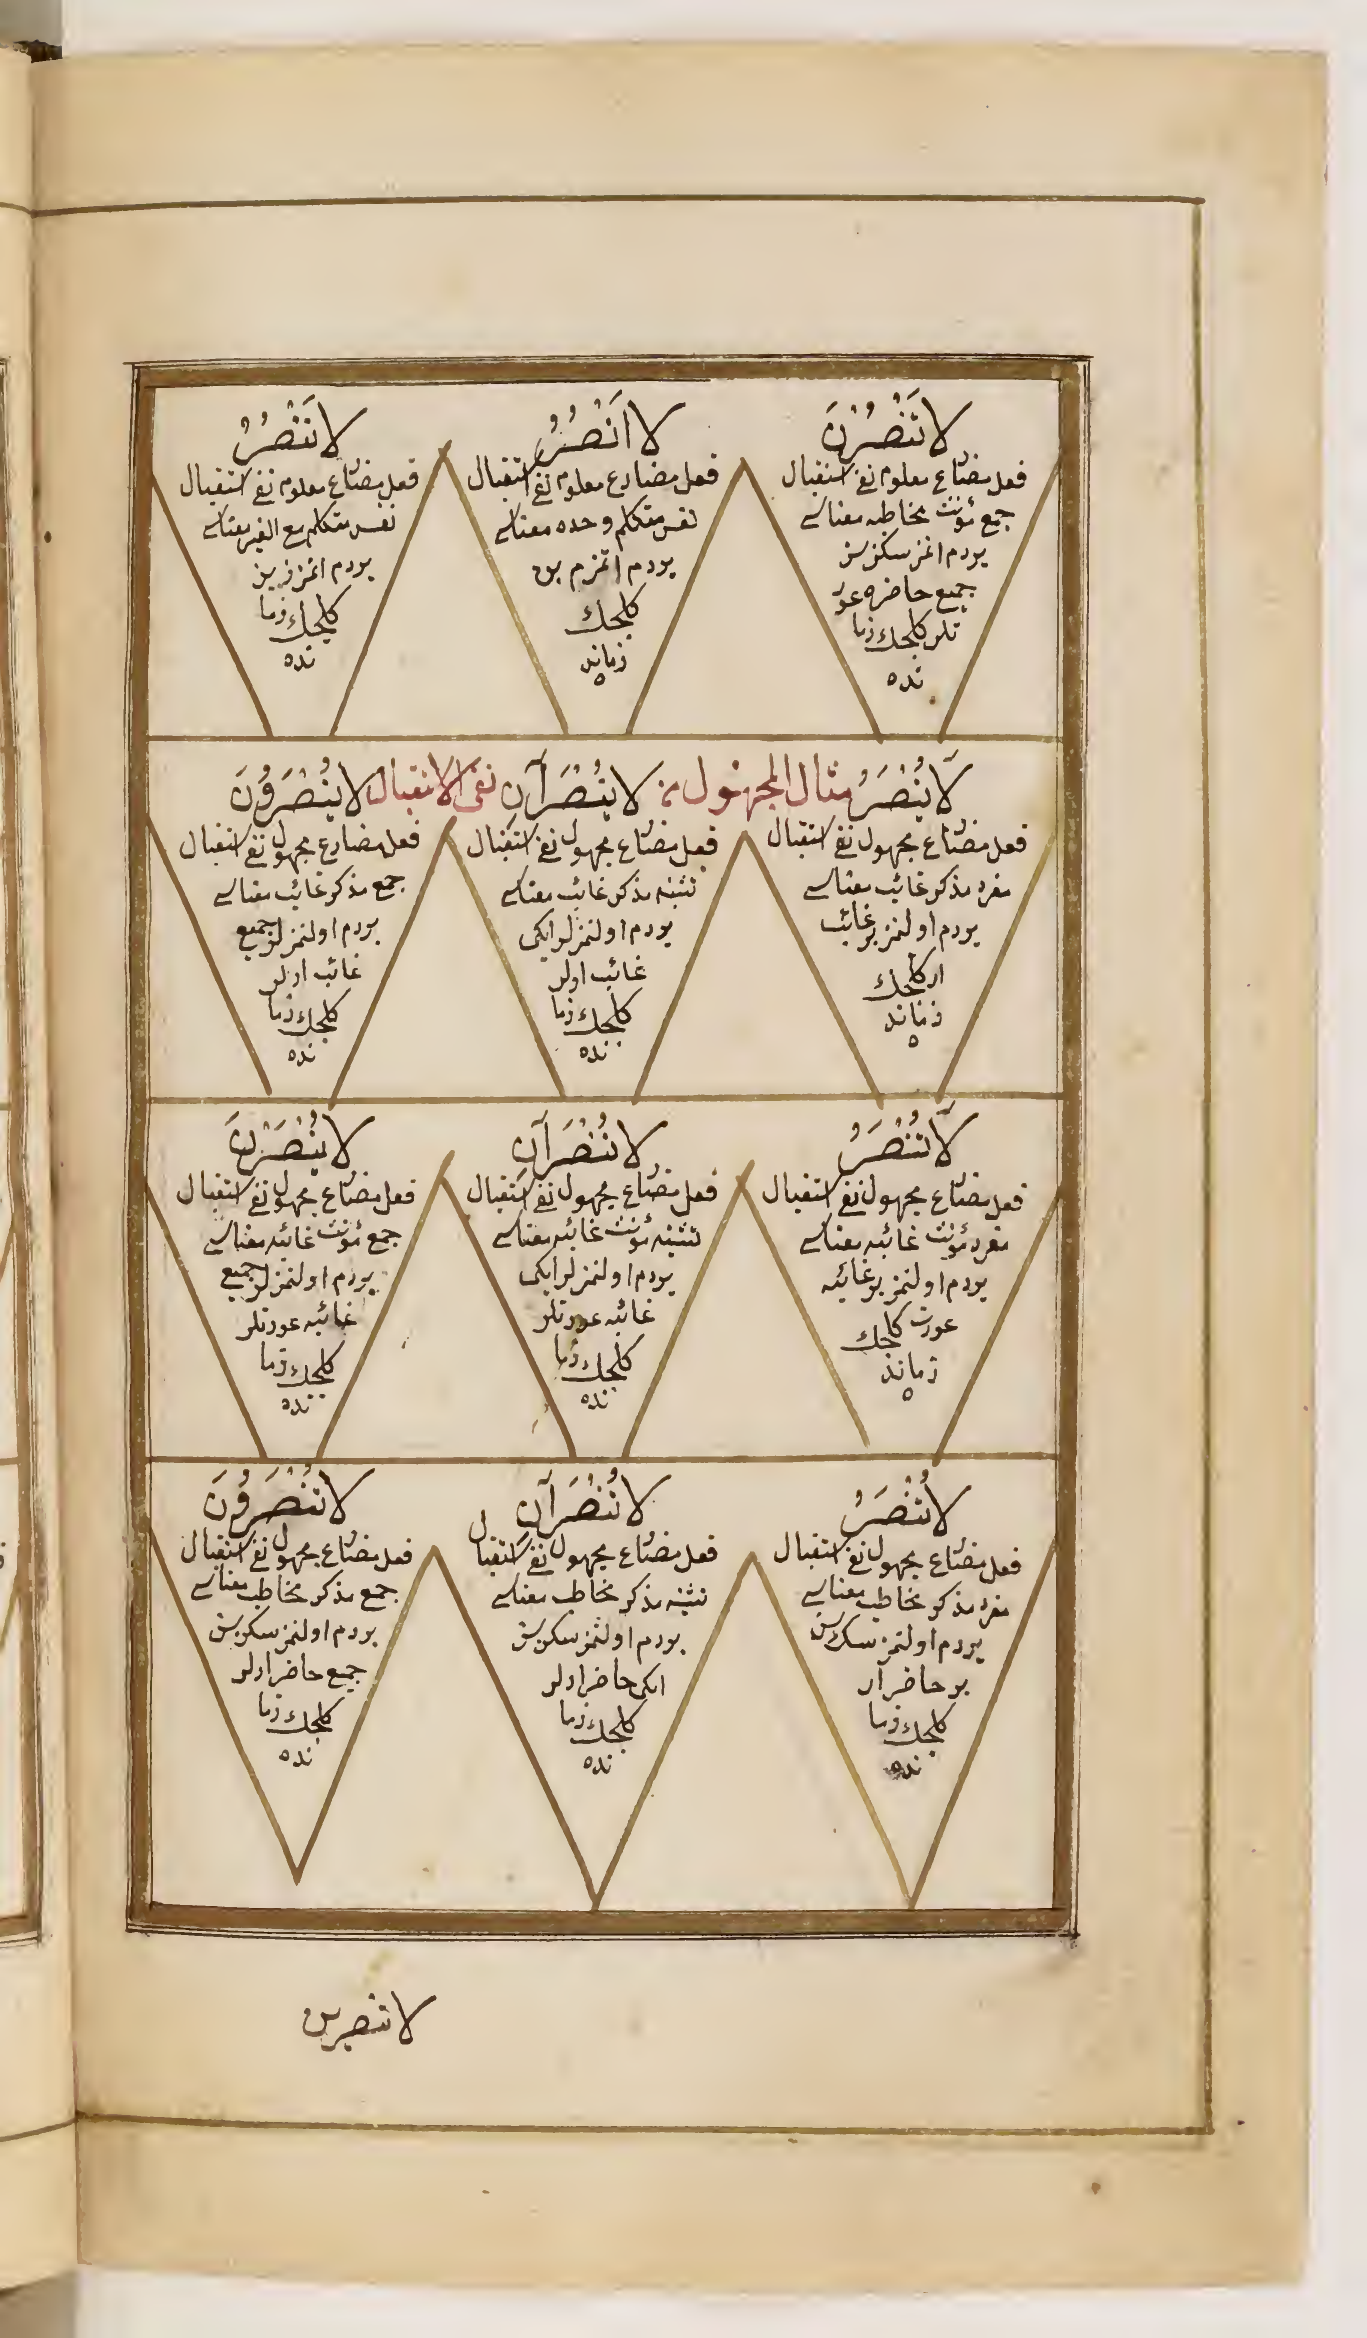 لَا تَنْصُرْنَ
فعل مضارع معلوم نفی استقبال
جمع مؤنث مخاطبه معناسی
یردم اتمز سکز سز
جمیع حاضره عور
تلر کله جك زما
نده
لَا اَنْصُرُ
فعل مضارع معلوم نفی استقبال
نفس متکلم وحده معناسی
یردم اتمزم بن
کله جك
زمانده
لَا نَنْصُرُ
فعل مضارع معلوم نفی استقبال
نفس متکلم مع الغیر معناسی
یردم اتمزز بز
کله جك زما
نده
لَا يُنْصَرُ مثال المجهول من لَا يُنْصَرَانِ نفی الاستقبال لَا يُنْصَرُونَ
فعل مضارع مجهول نفی استقبال
مفرد مذکر غائب معناسی
یردم اولنمز بر غائب
ار کله جك
زمانده
فعل مضارع مجهول نفی استقبال
تثنیه مذکر غائب معناسی
یردم اولنمزلر ایکی
غائب ارلر
کله جك زما
نده
فعل مضارع مجهول نفی استقبال
جمع مذکر غائب معناسی
یردم اولنمزلر جمیع
غائب ارلر
کله جك زما
نده
لَا تُنْصَرُ
فعل مضارع مجهول نفی استقبال
مفرد مؤنث غائبه معناسی
یردم اولنمز بر غائبه
عورت کله جك
زمانده
لَا تُنْصَرَانِ
فعل مضارع مجهول نفی استقبال
تثنیه مؤنث غائبه معناسی
یردم اولنمزلر ایکی
غائبه عورتلر
کله جك زما
نده
لَا يُنْصَرْنَ
فعل مضارع مجهول نفی استقبال
جمع مؤنث غائبه معناسی
یردم اولنمزلر جمیع
غائبه عورتلر
کله جك زما
نده
لَا تُنْصَرُ
فعل مضارع مجهول نفی استقبال
مفرد مذکر مخاطب معناسی
یردم اولنمز سك سن
بر حاضر ار
کله جك زما
نده
لَا تُنْصَرَانِ
فعل مضارع مجهول نفی استقبال
تثنیه مذکر مخاطب معناسی
یردم اولنمز سکز سز
ایکی حاضر ارلر
کله جك زما
نده
لَا تُنْصَرُونَ
فعل مضارع مجهول نفی استقبال
جمع مذکر مخاطب معناسی
یردم اولنمز سکز سز
جمیع حاضر ارلر
کله جك زما
نده
لا تنصرین